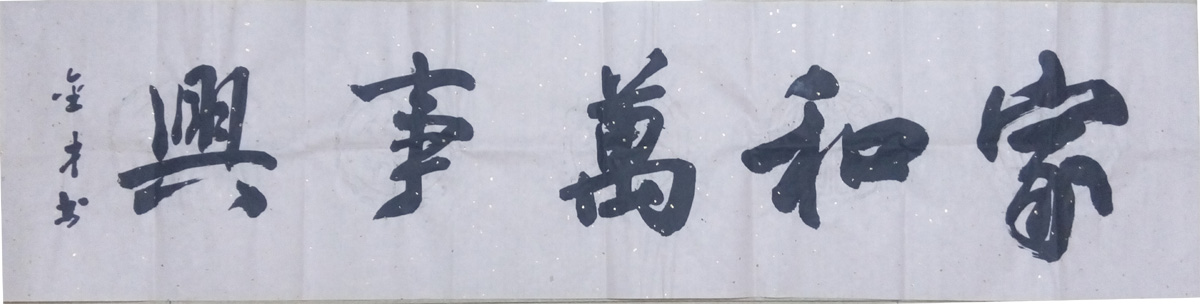 家和萬事興
金才书